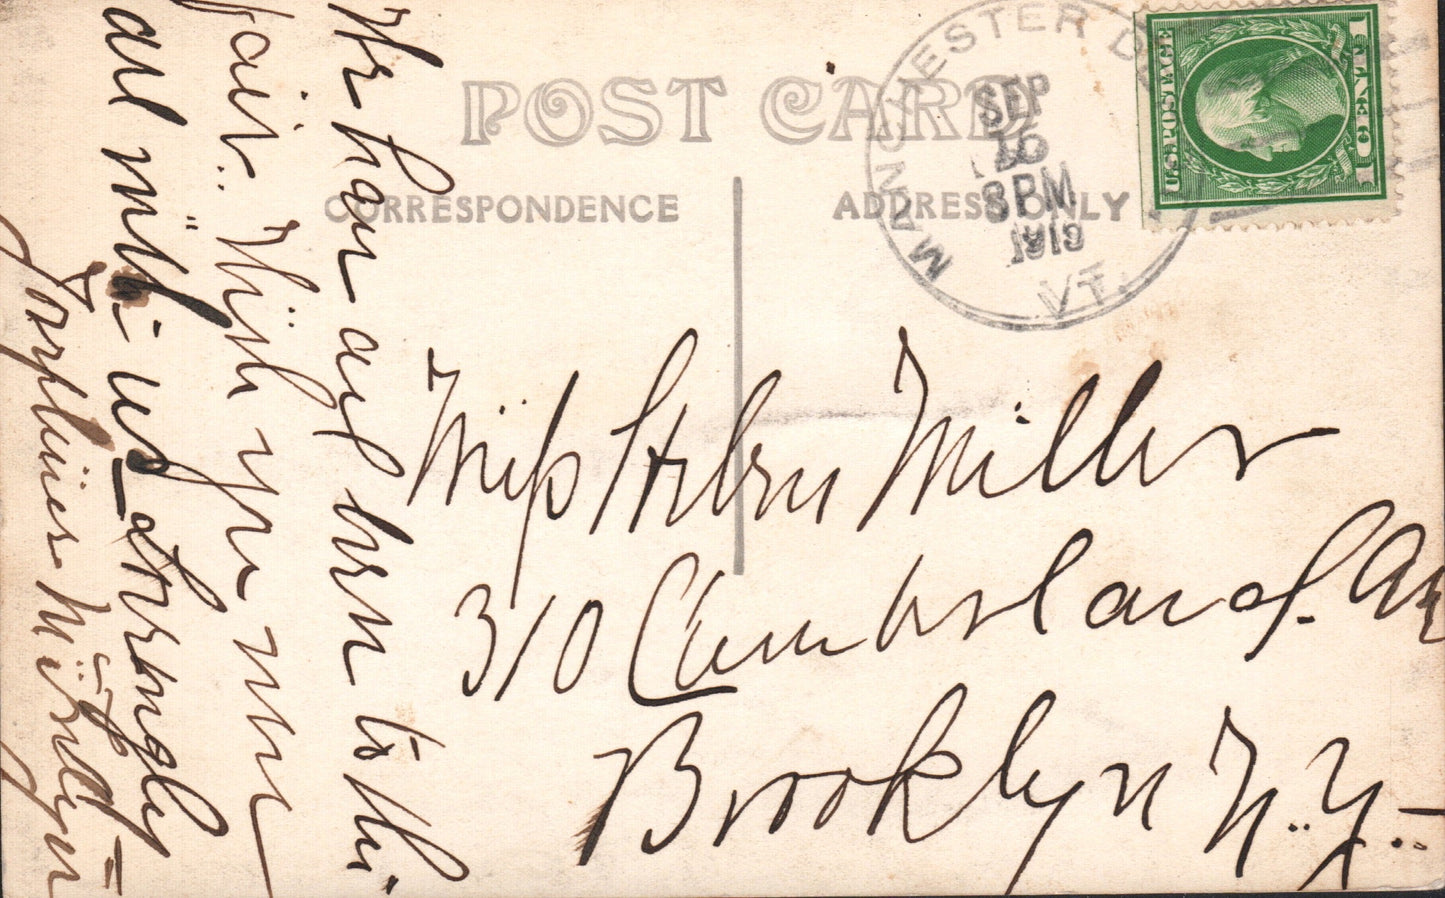 POST CARD
CORRESPONDENCE
ADDRESS ONLY
MANCHESTER D
SEP
16
8 PM
1913
VT.
U.S. POSTAGE
1 CENT 1
We have all been to the
fair. Wish you were
all with us
Miss Helen Miller
310 Cumberland
Brooklyn N.Y.